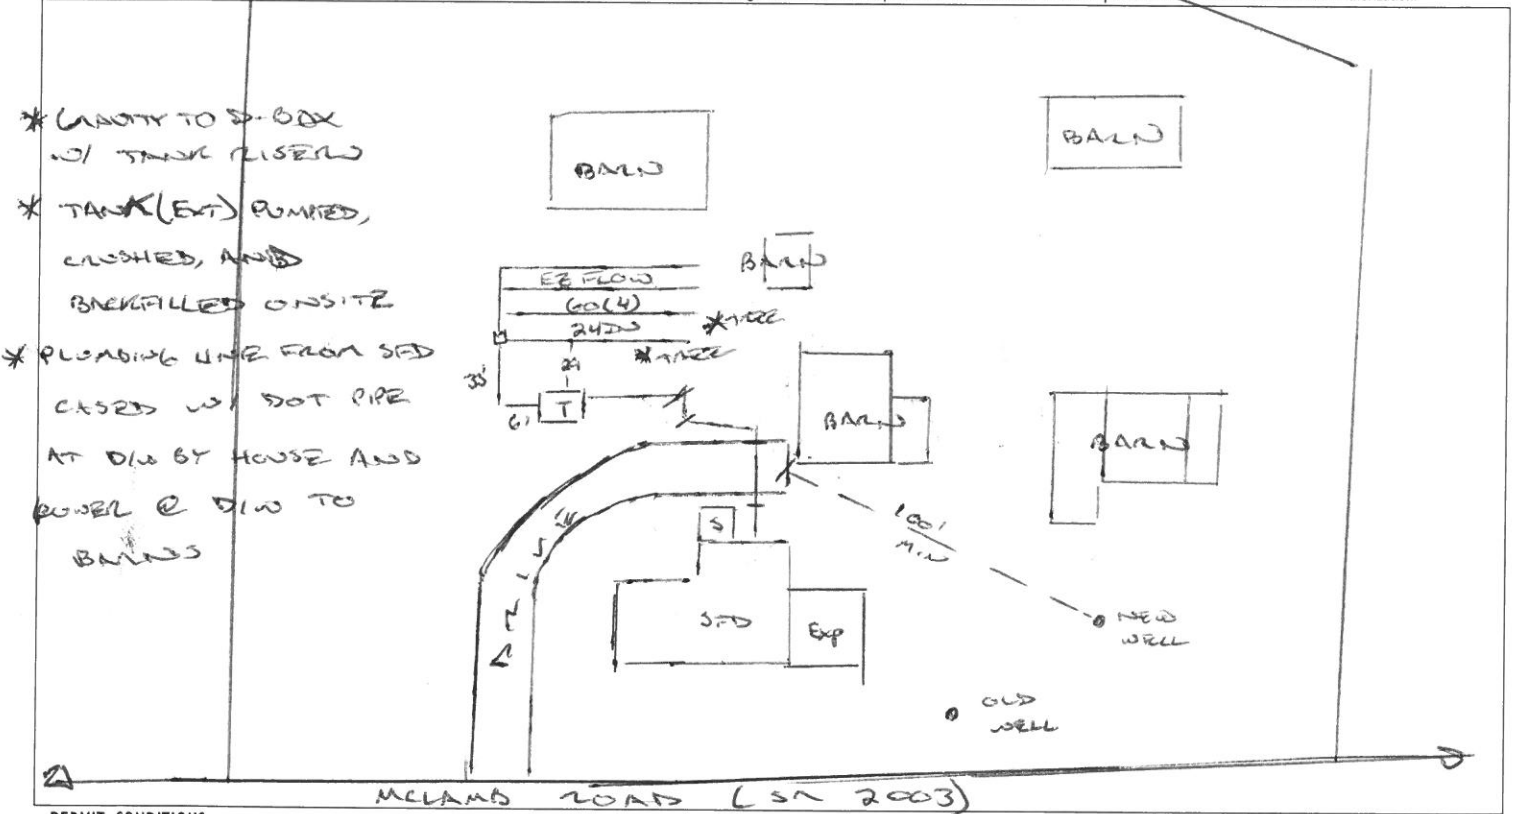 * GRAVITY TO D-BOX
W/ TANK RISERS
* TANK (EXT) PUMPED,
CRUSHED, AND
BACKFILLED ONSITE
* PLUMBING LINE FROM SFD
CASED W/ DOT PIPE
AT D/W BY HOUSE AND
POWER @ D/W TO
BARNS
BARN
BARN
BARN
EZ FLOW
60(4)
24IN
*TREE
*TREE
35'
6'
T
BARN
BARN
DRIVEWAY
S
SFD
Exp
100'
MIN
NEW
WELL
OLD
WELL
MCLAMB ROAD (SR 2003)